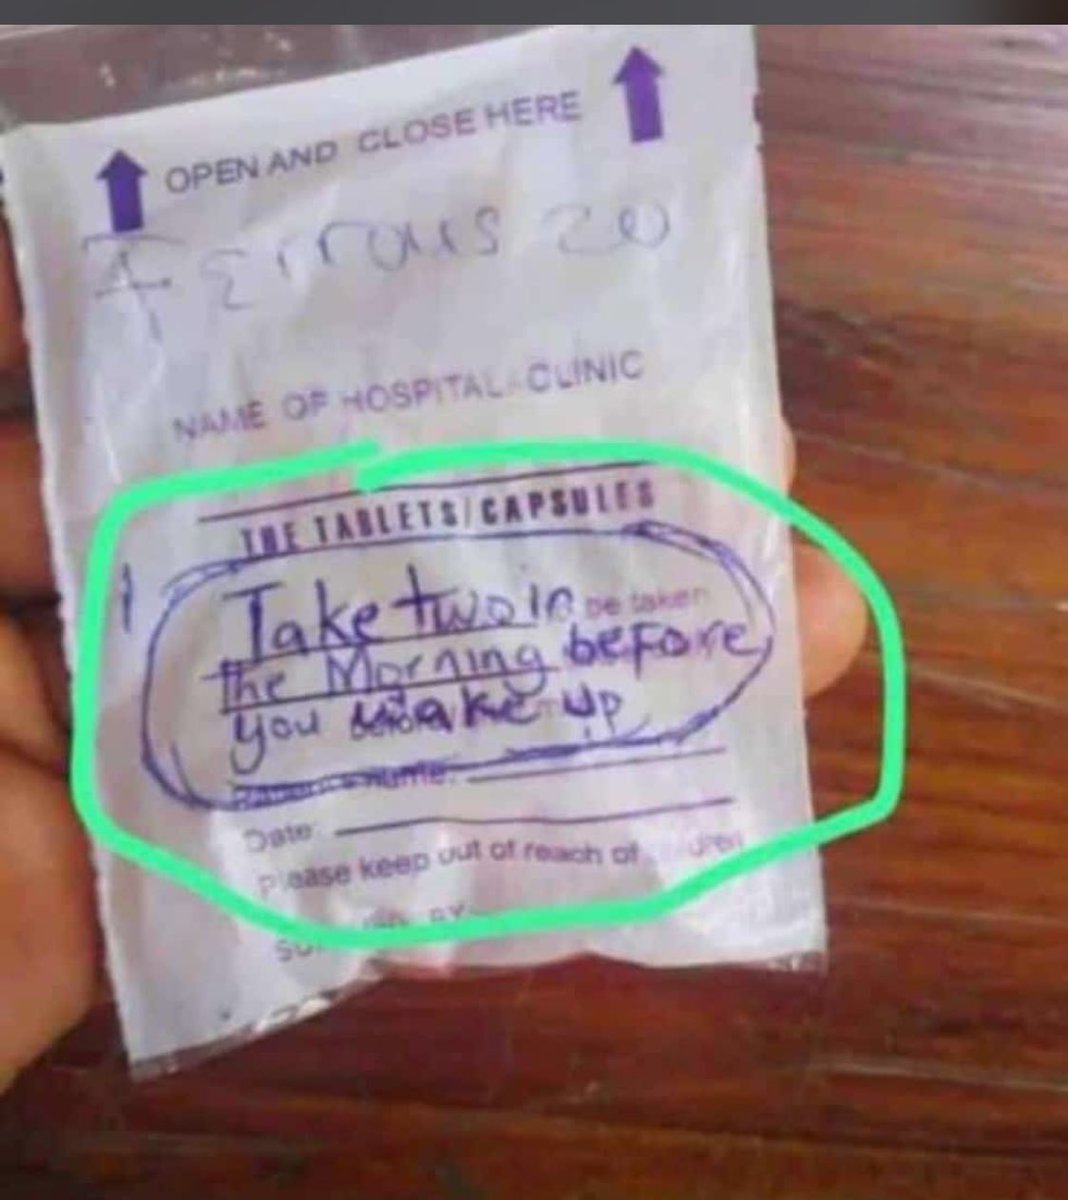 OPEN AND CLOSE HERE
Ferrous 20
NAME OF HOSPITAL-CLINIC
THE TABLETS/CAPSULES
Take two in be taken
the Morning before
you wake up
name:
Date:
Please keep out of reach of children
BY